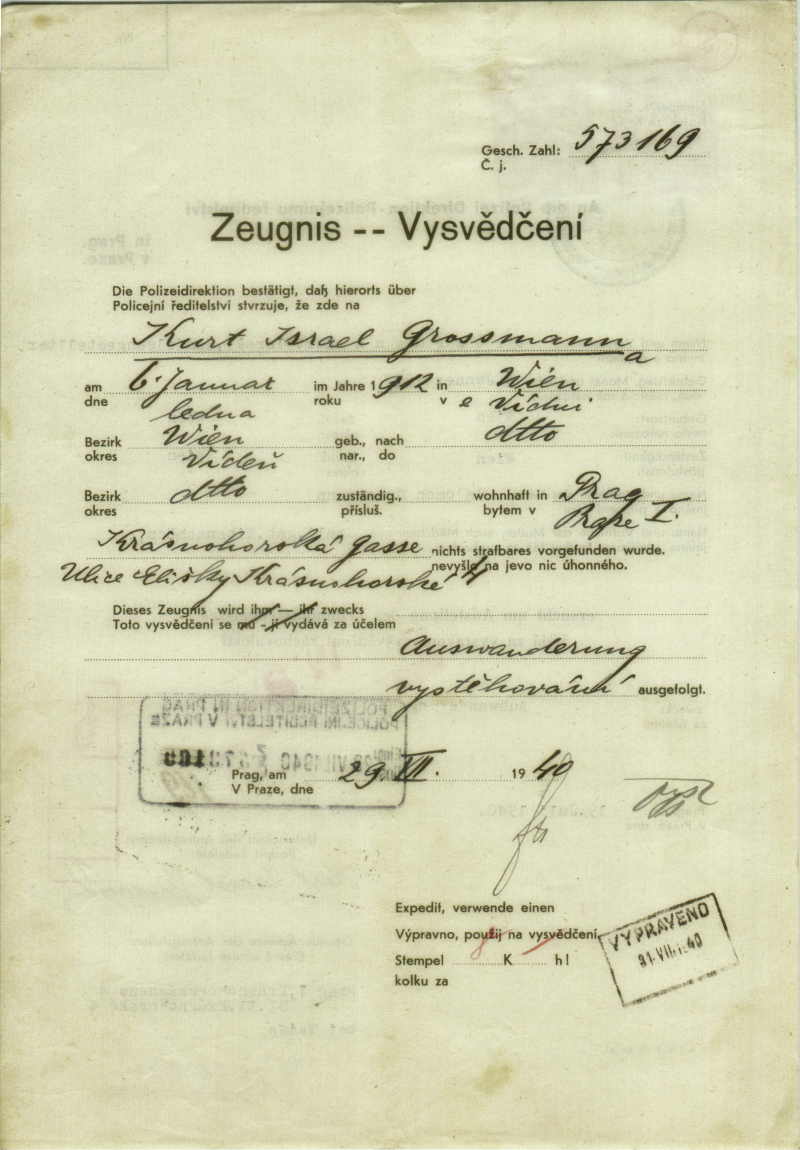 Gesch. Zahl: 573169
Č. j.
Zeugnis -- Vysvědčení
Die Polizeidirektion bestätigt, daß hierorts über
Policejní ředitelství stvrzuje, že zde na
Kurt Israel Grossmann
a
am 6. Januar im Jahre 1912 in Wien
dne ledna roku v e Vídni
Bezirk Wien geb., nach dtto
okres Vídeň nar., do
Bezirk dtto zuständig., wohnhaft in Prag
okres přísluš. bytem v Praze I.
Krásnohorská Gasse nichts strafbares vorgefunden wurde.
Ulice Elišky Krásnohorské 4 nevyšlo na jevo nic úhonného.
Dieses Zeugnis wird ihm — ihr zwecks
Toto vysvědčení se mu - jí vydává za účelem
Auswanderung
vystěhování ausgefolgt.
POLIZEIDIREKTION IN PRAG
POLICEJNÍ ŘEDITELSTVÍ V PRAZE
Prag, am 29. VII. 1940
V Praze, dne
Expedit, verwende einen
Výpravno, použij na vysvědčení
Stempel 8 K h!
kolku za
VYPRAVENO
31. VII. 1940